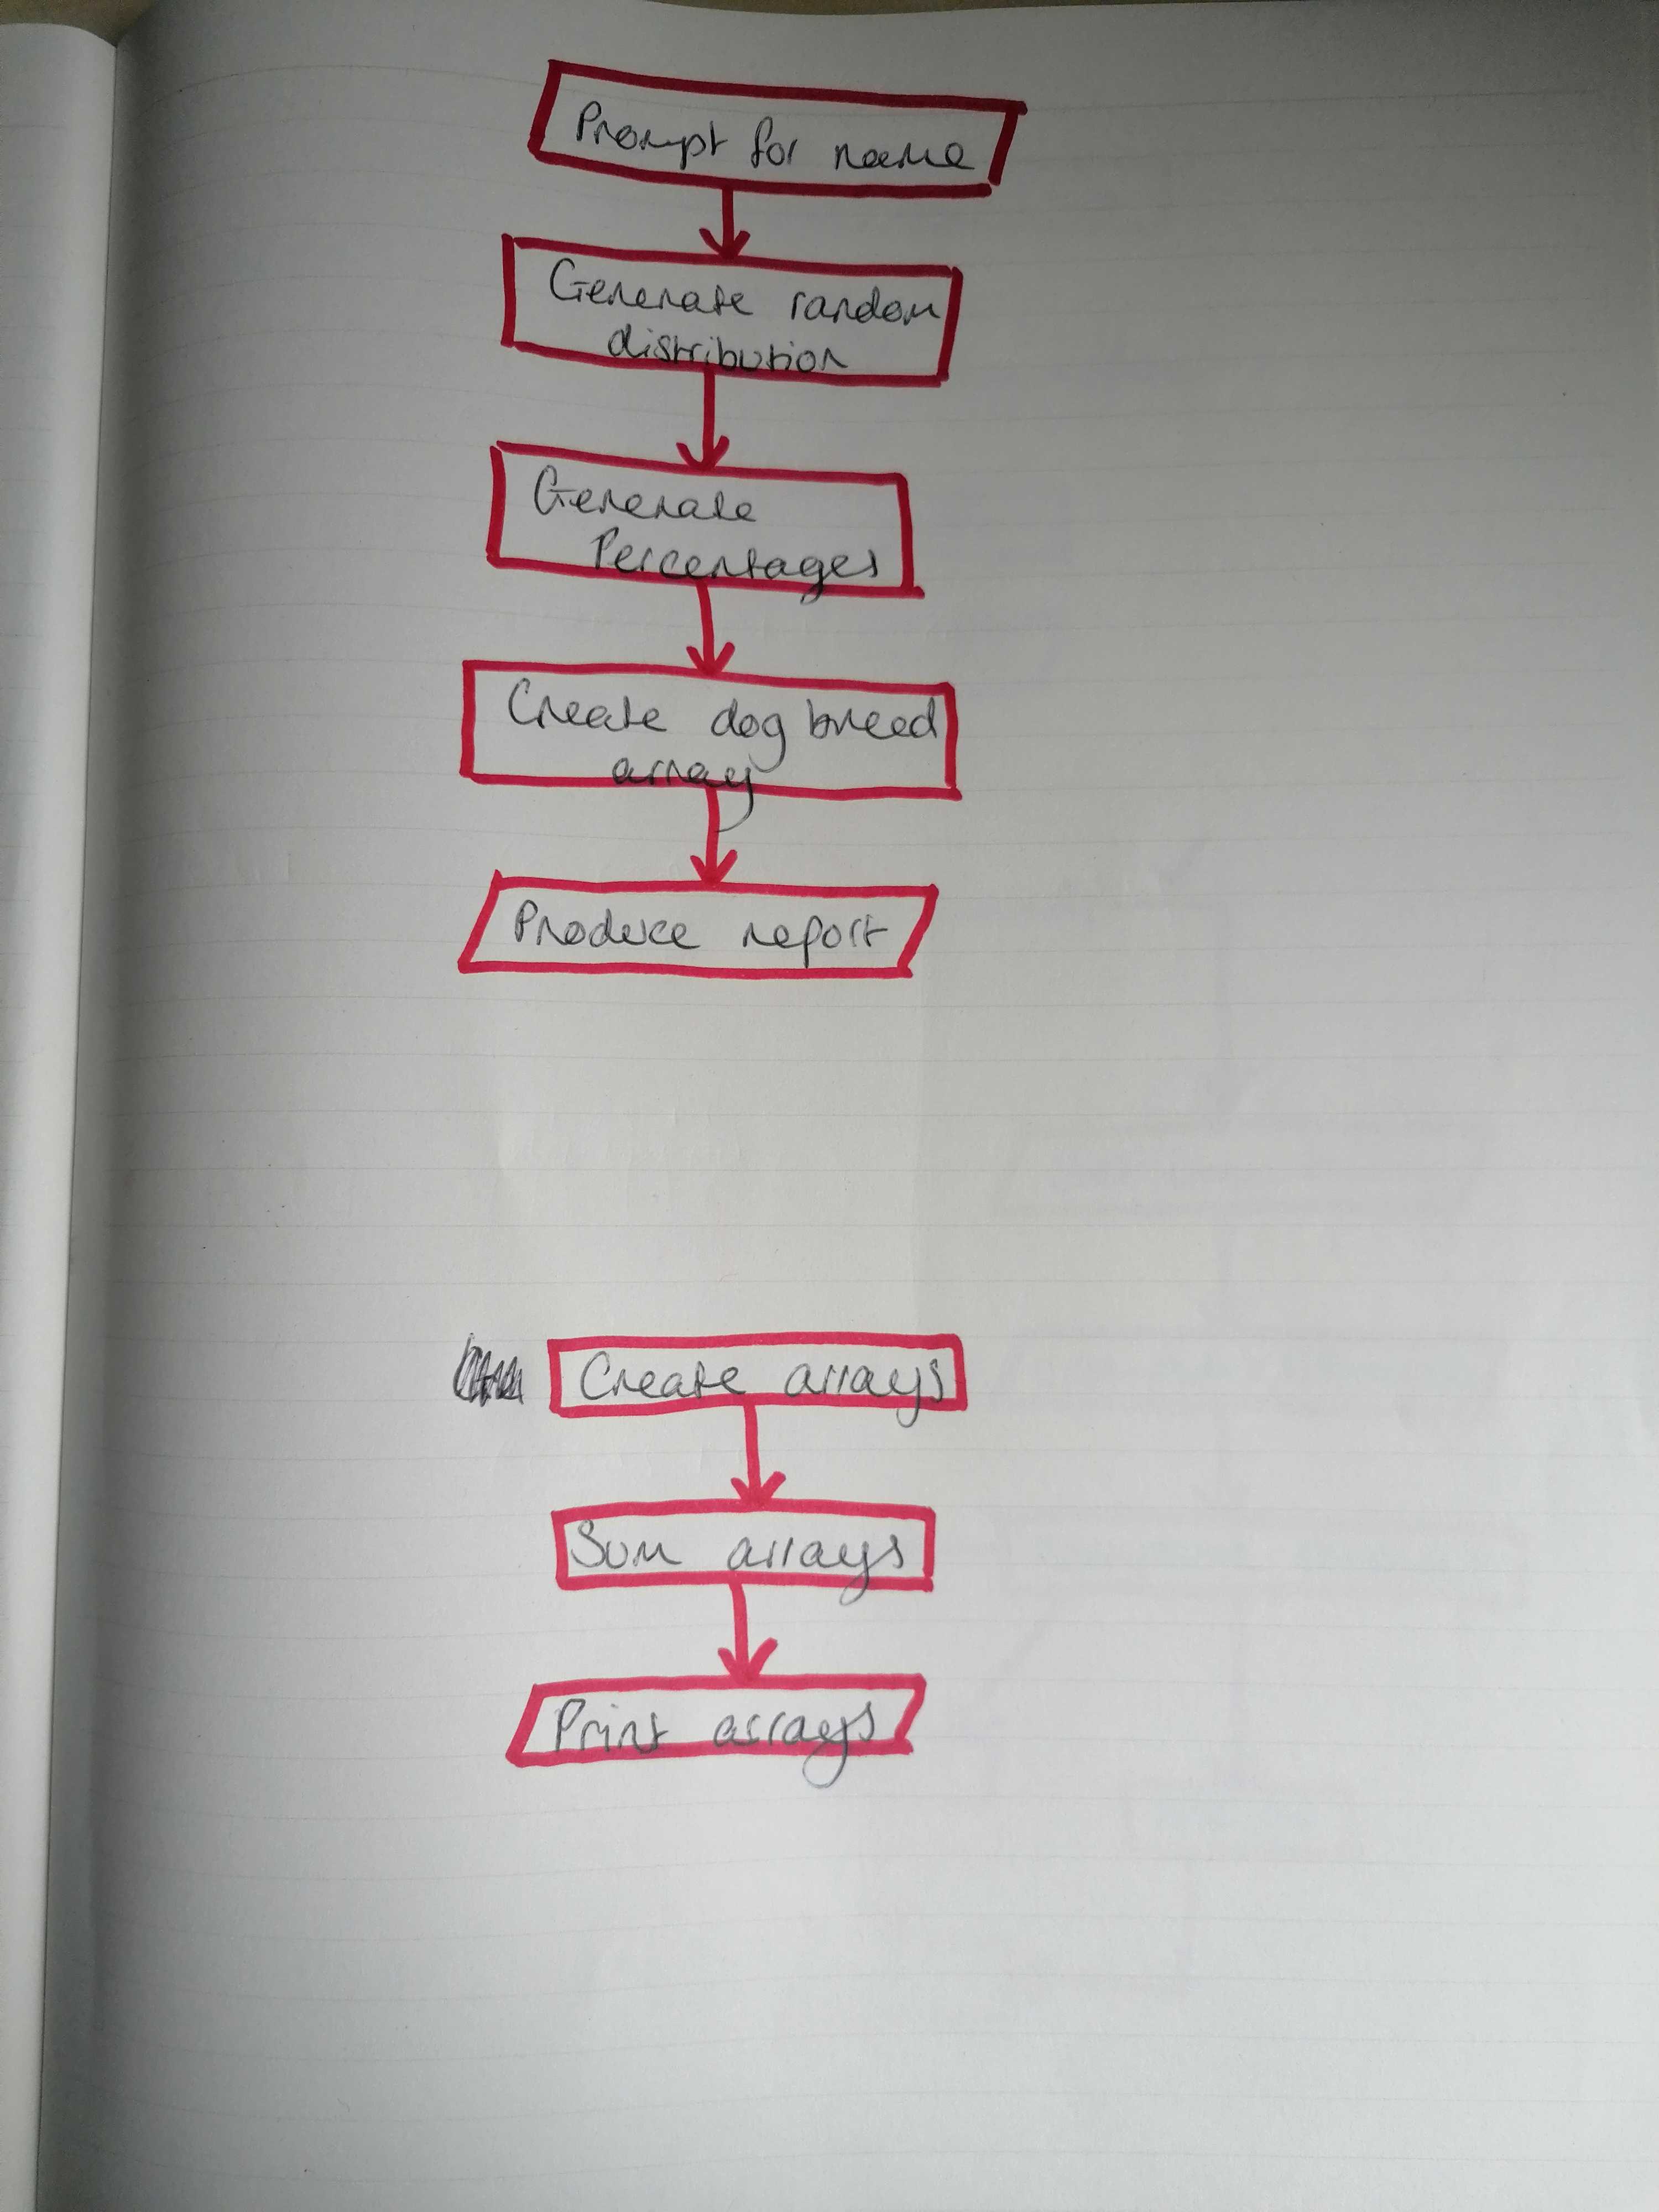 Prompt for name
Generate random
distribution
Generate
Percentages
Create dog breed
array
Produce report
Create arrays
Sum arrays
Print arrays